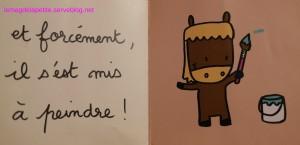 iamagdelapetite.serveblog.net
et forcément,
il s'est mis
à peindre !